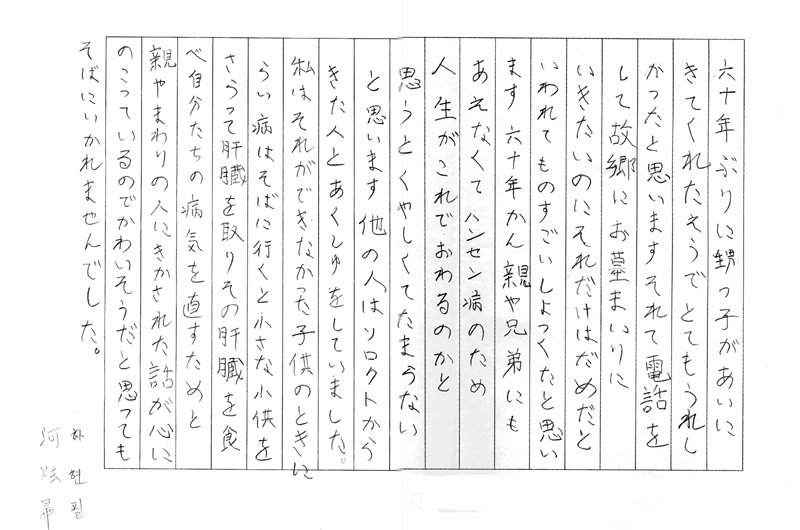 六十年ぶりに甥っ子があいに
きてくれたそうでとてもうれし
かったと思いますそれて電話を
して故郷にお墓まいりに
いきたいのにそれだけはだめだと
いわれてものすごいしょつくたと思い
ます六十年かん親や兄弟にも
あえなくてハンセン病のため
人生がこれでおわるのかと
思うとくやしくてたまらない
と思います他の人はソロクトから
きた人とあくしゅをしていました。
私はそれができなかった子供のときに
らい病はそばに行くと小さな小供を
さらって肝臓を取りその肝臓を食
べ自分たちの病気を直すためと
親やまわりの人にきかされた話が心に
のこっているのでかわいそうだと思っても
そばにいかれませんでした。
하현필
河炫